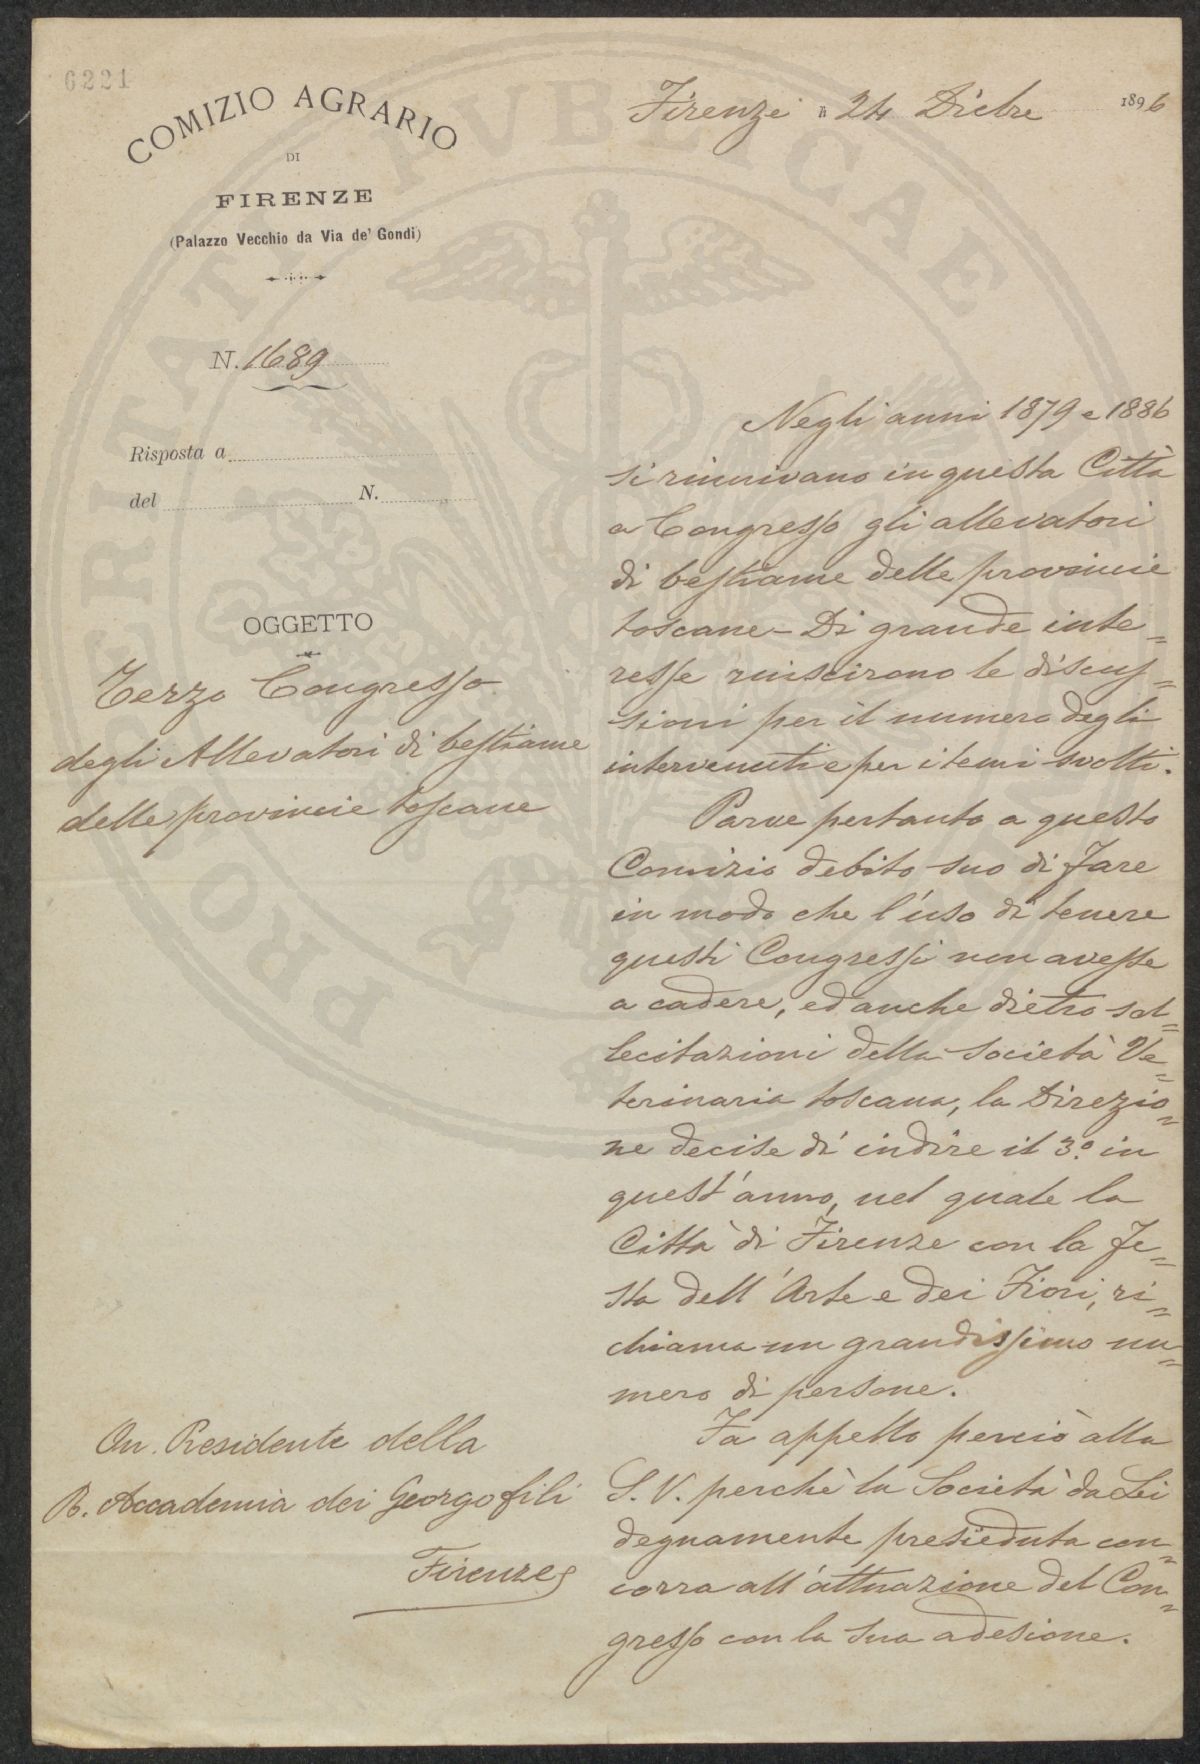 6221
COMIZIO AGRARIO
DI
FIRENZE
(Palazzo Vecchio da Via de' Gondi)
N. 1689
Risposta a
del N.
OGGETTO
Terzo Congresso
degli Allevatori di bestiame
delle provincie toscane
On. Presidente della
R. Accademia dei Georgofili
Firenze
Firenze li 24 Dicbre 1896
Negli anni 1879 e 1886
si riunivano in questa Città
a Congresso gli allevatori
di bestiame delle provincie
toscane - Di grande inte=
resse riuscirono le discus=
sioni per il numero degli
intervenuti e per i temi svolti.
Parve pertanto a questo
Comizio debito suo di fare
in modo che l'uso di tenere
questi Congressi non avesse
a cadere, ed anche dietro sol=
lecitazioni della Società Ve=
terinaria toscana, la Direzio=
ne decise di indire il 3.o in
quest'anno, nel quale la
Città di Firenze con la Fe=
sta dell'Arte e dei Fiori, ri=
chiama un grandissimo nu=
mero di persone.
Fa appello perciò alla
S. V. perchè la Società da Lei
degnamente presieduta con=
corra all'attuazione del Con=
gresso con la sua adesione.
PROSPERITATI PUBLICAE